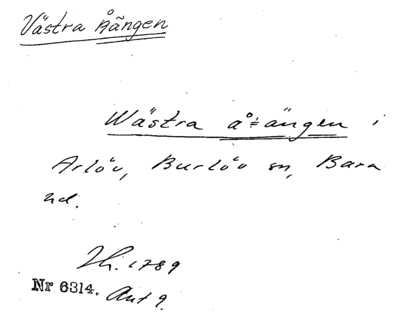 Västra Aängen
Wästra å=ängen i
Arlöv, Burlöv sn, Bara
hd.
Lh. 1789
Nr 6314. Akt 9.